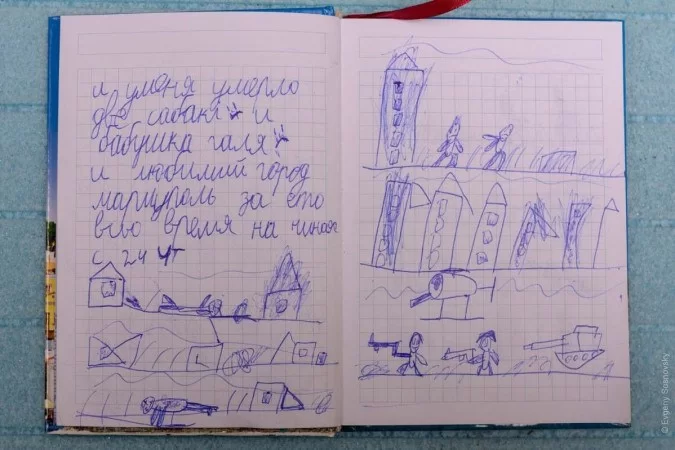 и уменя умерло
две сабаки и
бабушка галя
и любилий город
мариуполь за это
всю время на чиная
с 24 чт
© Evgeny Sosnovsky